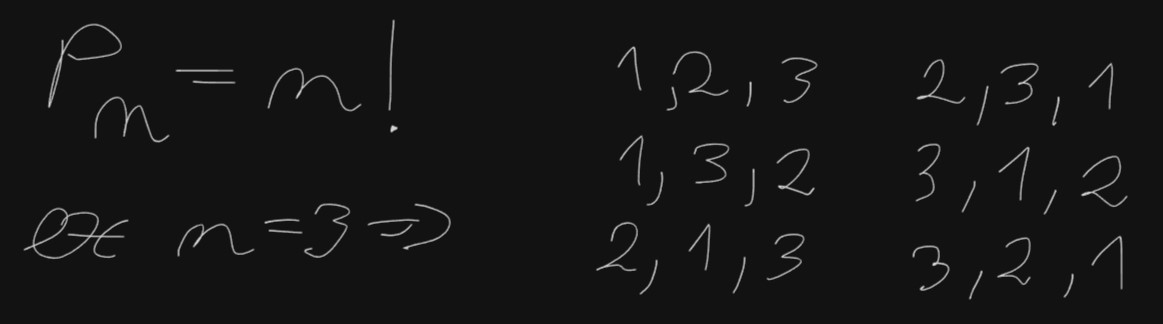 Pn = n!
ex n=3 =>
1,2,3
1,3,2
2,1,3
2,3,1
3,1,2
3,2,1